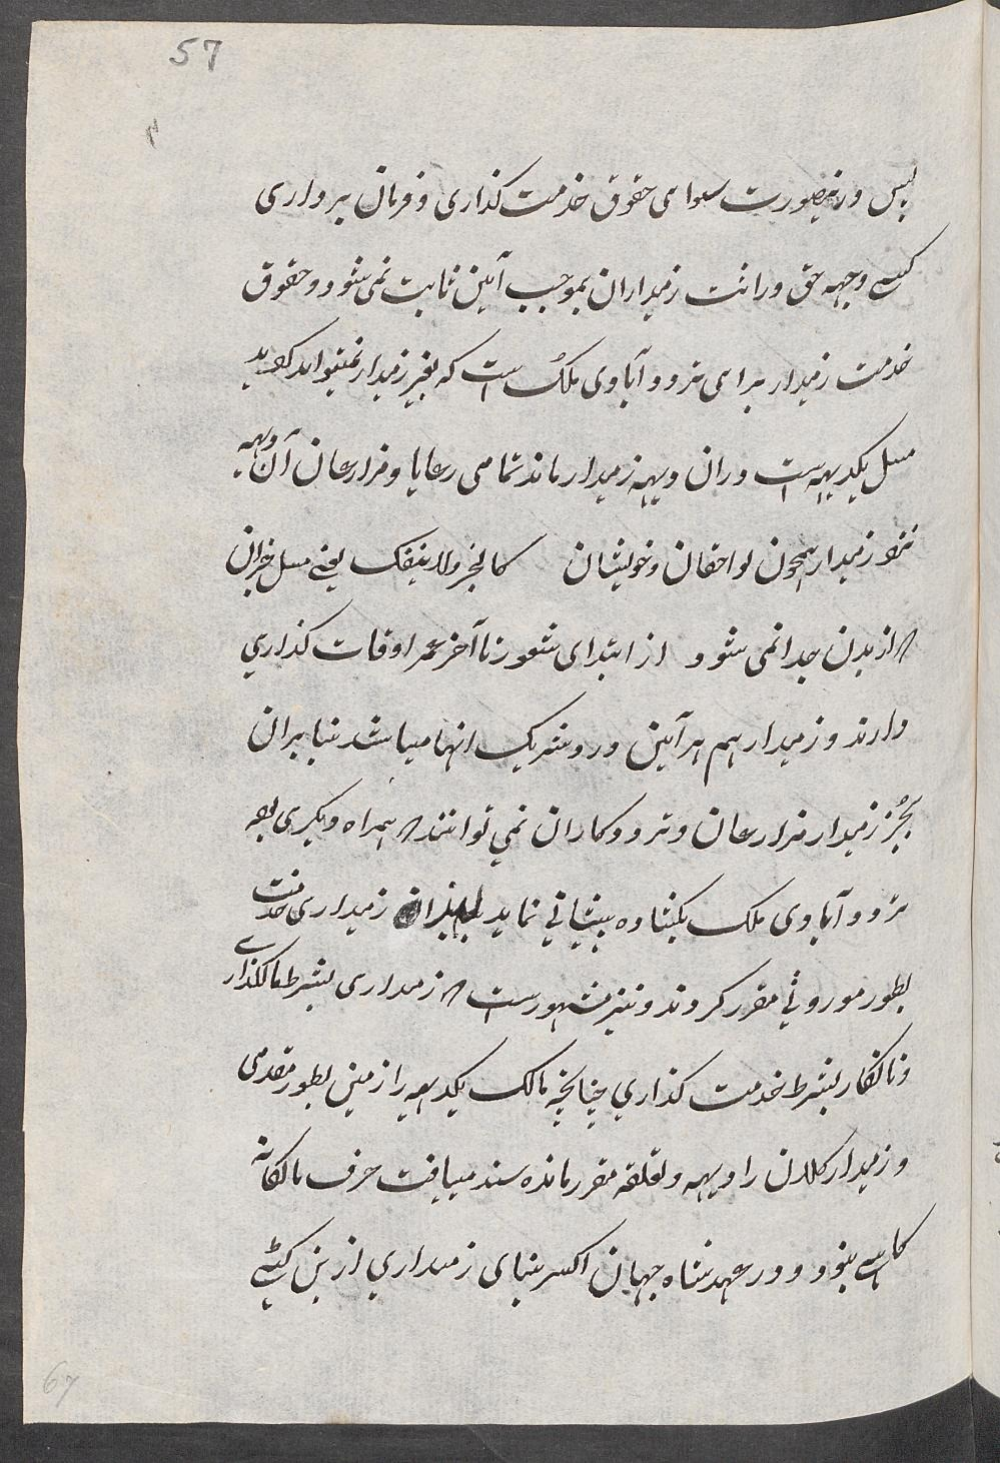 57
پس درینصورت سوای حقوق خدمت گذاری و فرمان برداری
کسے وجهه حق وراثت زمیداران بموجب آئین ثابت نمی شود و حقوق
خدمت زمیدار برای تردد و آبادی ملک است که بغیر زمیدار نمیتواند
یکدیهه است دران دیهه زمیدار ماند تمامی رعایا و مزارعان آن دیهه
نزد زمیدار همچون لواحقان و خویشان کالجزء لاینفک یعنے مسل جزان
از بدن جدا نمی شود از ابتدای شعور تا آخر عمر اوقات گذاری
دارند و زمیدار هم هر آئین درد شریک انها میباشد بنابران
بجُز زمیدار مزارعان و تردد کاران نمی توانند همراه دیگری
تردد و آبادی ملک بکشاده پیشانی نماید زمیداری خدمت
بطور موروثی مقرر کردند و نیز مشهور است زمیداری بشرط مالگذاری
و نانکار بشرط خدمت گذاری چنانچه مالک یکدیهه را زمین بطور مقدمی
و زمیدار کلان را دیهه و تعلقه مقرر مانده سند مییافت حرف مالکانه
کاهے نبود و در عهد شاه جهان اکثر بنای زمیداری از بن کٹے
67